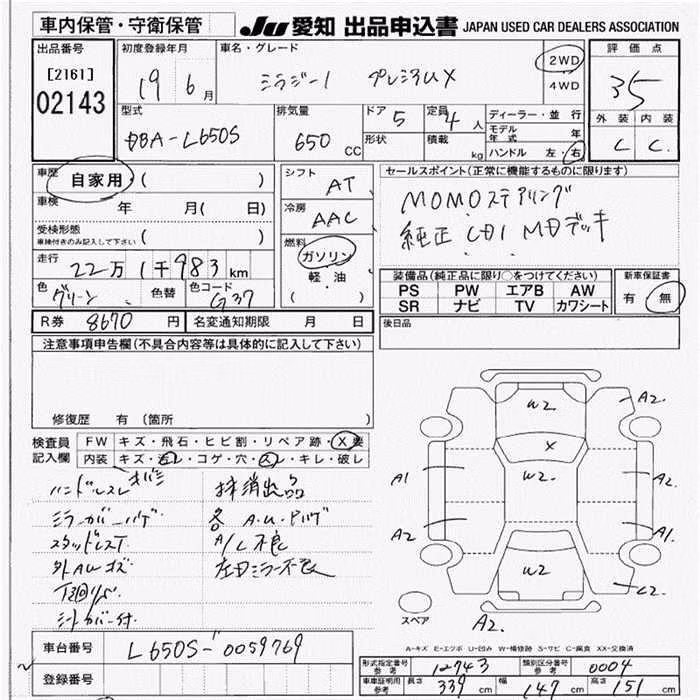 車内保管・守衛保管
JU 愛知 出品申込書 JAPAN USED CAR DEALERS ASSOCIATION
出品番号 [2161] 02143
初度登録年月 19 6月
車名・グレード ミラジーノ プレミアムX
2WD
4WD
評価点 35
外装 内装
C C
型式 DBA-L650S
排気量 650 CC
ドア 5
形状
定員 4人
積載 kg
ディーラー・並行
モデル年式 年
ハンドル 左・右
車歴 自家用 ( )
車検 年 月( 日)
受検形態 ( )
車検付きのみ記入して下さい
走行 22万1千983km
色 グリーン 色替 色コード G37
シフト AT
冷房 AAC
燃料 ガソリン
軽・油
( )
セールスポイント(正常に機能するものに限ります)
MOMOステアリング
純正 CD1 MDデッキ
装備品(純正品に限り○をつけてください)
PS PW エアB AW
SR ナビ TV カワシート
新車保証書
有 無
R券 8670円
名変通知期限 月 日
後日品
注意事項申告欄(不具合内容等は具体的に記入して下さい)
修復歴 有 (箇所 )
検査員記入欄
FW キズ・飛石・ヒビ割・リペア跡・X要
内装 キズ・汚レ・コゲ・穴・スレ・キレ・破レ
ハンドルスレ
抹消出品
ミラーカバーキズ
スタッドレスT
A/C不良
外AWキズ
左右ミラー不良
下廻りサビ
シートカバー付
W2
X
W2
W2
A2
A1
A2
A1
A2
C2
スペア
A-キズ E-エクボ U-凹み W-補修跡 S-サビ C-腐食 XX-交換済
車台番号 L650S-0059769
登録番号
形式指定番号 参考 12743
類別区分番号 参考 0004
車車証明用 参考 長さ 339cm 幅 147cm 高さ 151cm